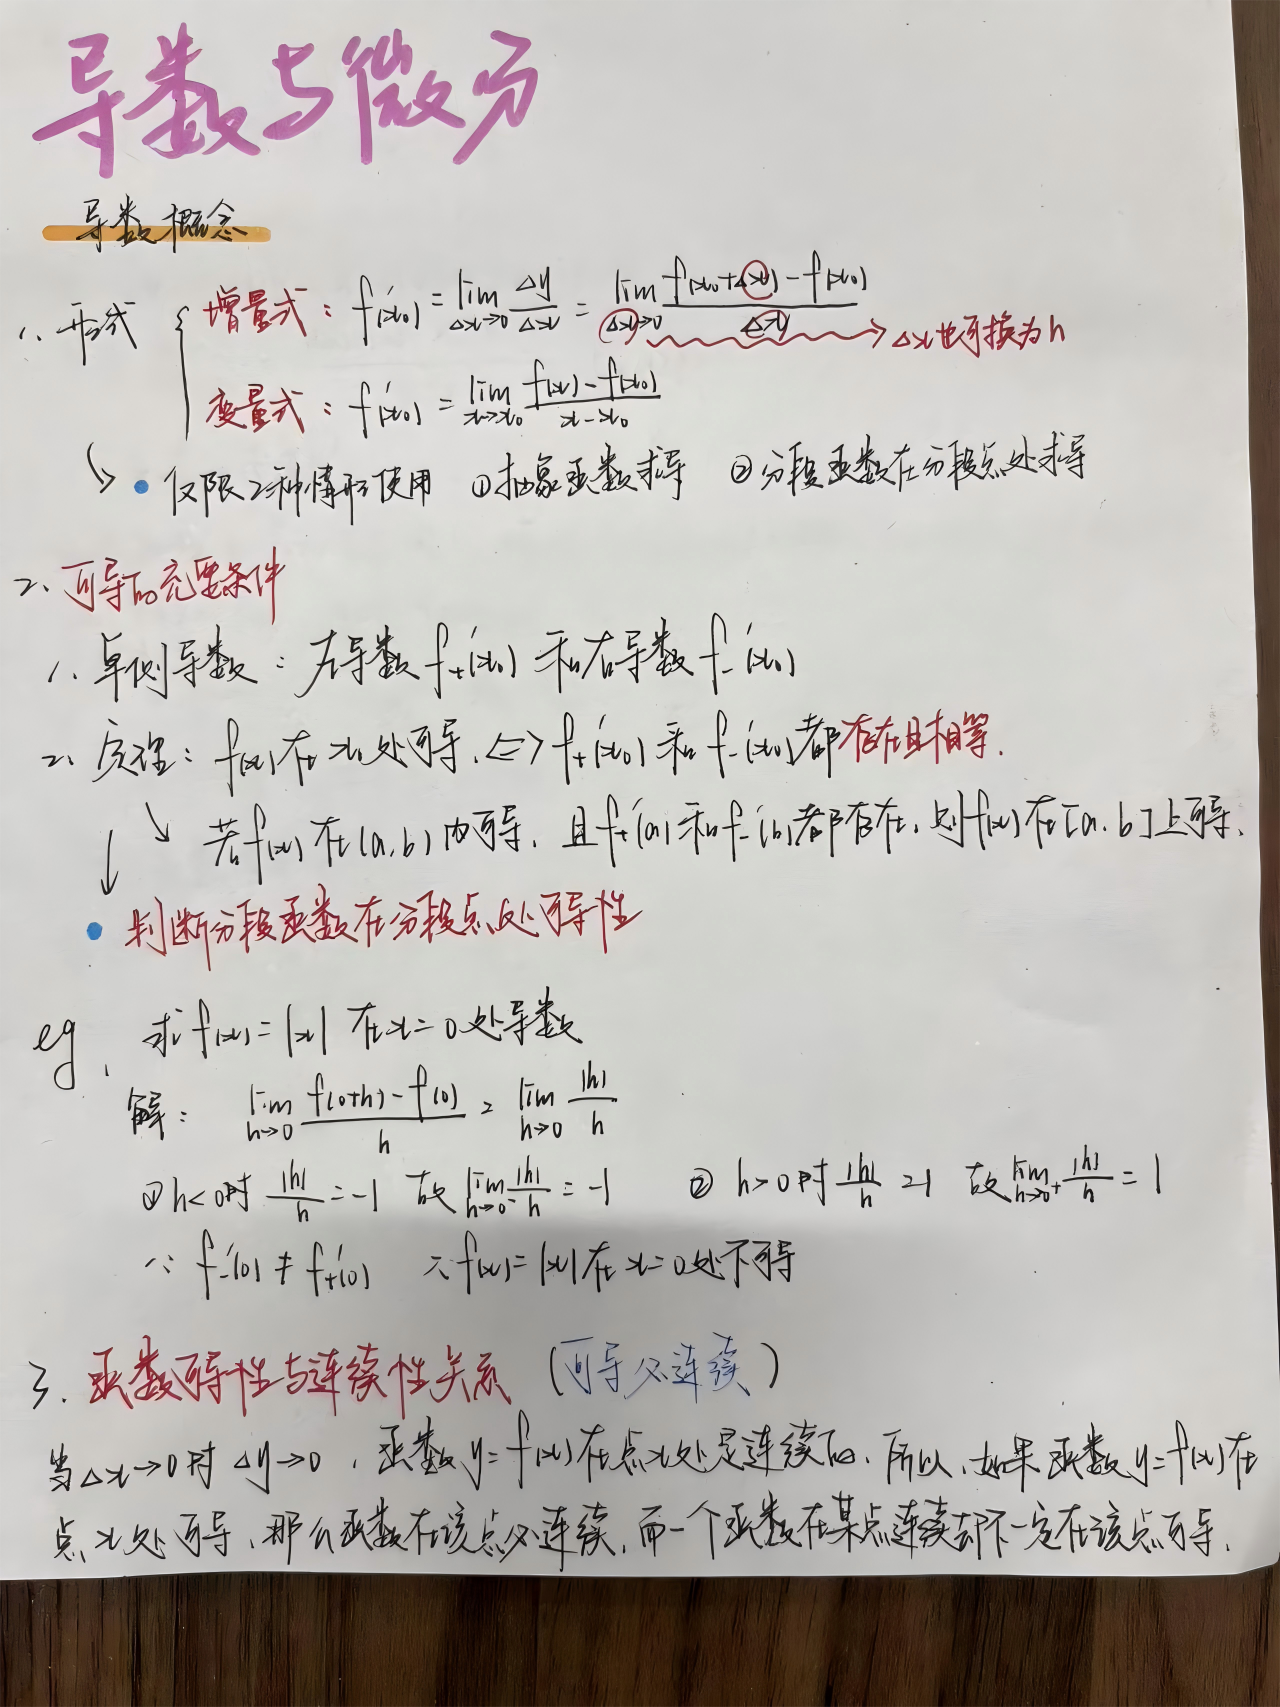 导数与微分
导数概念
1、形式 { 增量式：f'(x₀) = lim_{Δx→0} Δy/Δx = lim_{Δx→0} [f(x₀+Δx)-f(x₀)]/Δx → Δx也可换为h
变量式：f'(x₀) = lim_{x→x₀} [f(x)-f(x₀)]/(x-x₀)
↳ • 仅限2种情形使用 ①抽象函数求导 ②分段函数在分段点处求导
2、可导的充要条件
1、单侧导数：左导数f₊'(x₀) 和右导数f₋'(x₀)
2、定理：f(x)在x₀处可导、⟺ f₊'(x₀) 和 f₋'(x₀)都存在且相等.
↘ 若f(x)在(a,b)内可导，且f₊'(a)和f₋'(b)都存在，则f(x)在[a,b]上可导.
↓ • 判断分段函数在分段点处可导性
eg、求f(x)=|x| 在x=0处导数
解： lim_{h→0} [f(0+h)-f(0)]/h = lim_{h→0} |h|/h
①h<0时 |h|/h = -1 故 lim_{h→0⁻} |h|/h = -1 ② h>0时 |h|/h = 1 故 lim_{h→0⁺} |h|/h = 1
∵ f₋'(0) ≠ f₊'(0) ∴ f(x)=|x|在x=0处不可导
3、函数可导性与连续性关系（可导必连续）
当Δx→0时Δy→0，函数y=f(x)在点x处是连续的、所以、如果函数y=f(x)在
点x处可导、那么函数在该点必连续，而一个函数在某点连续却不一定在该点可导.